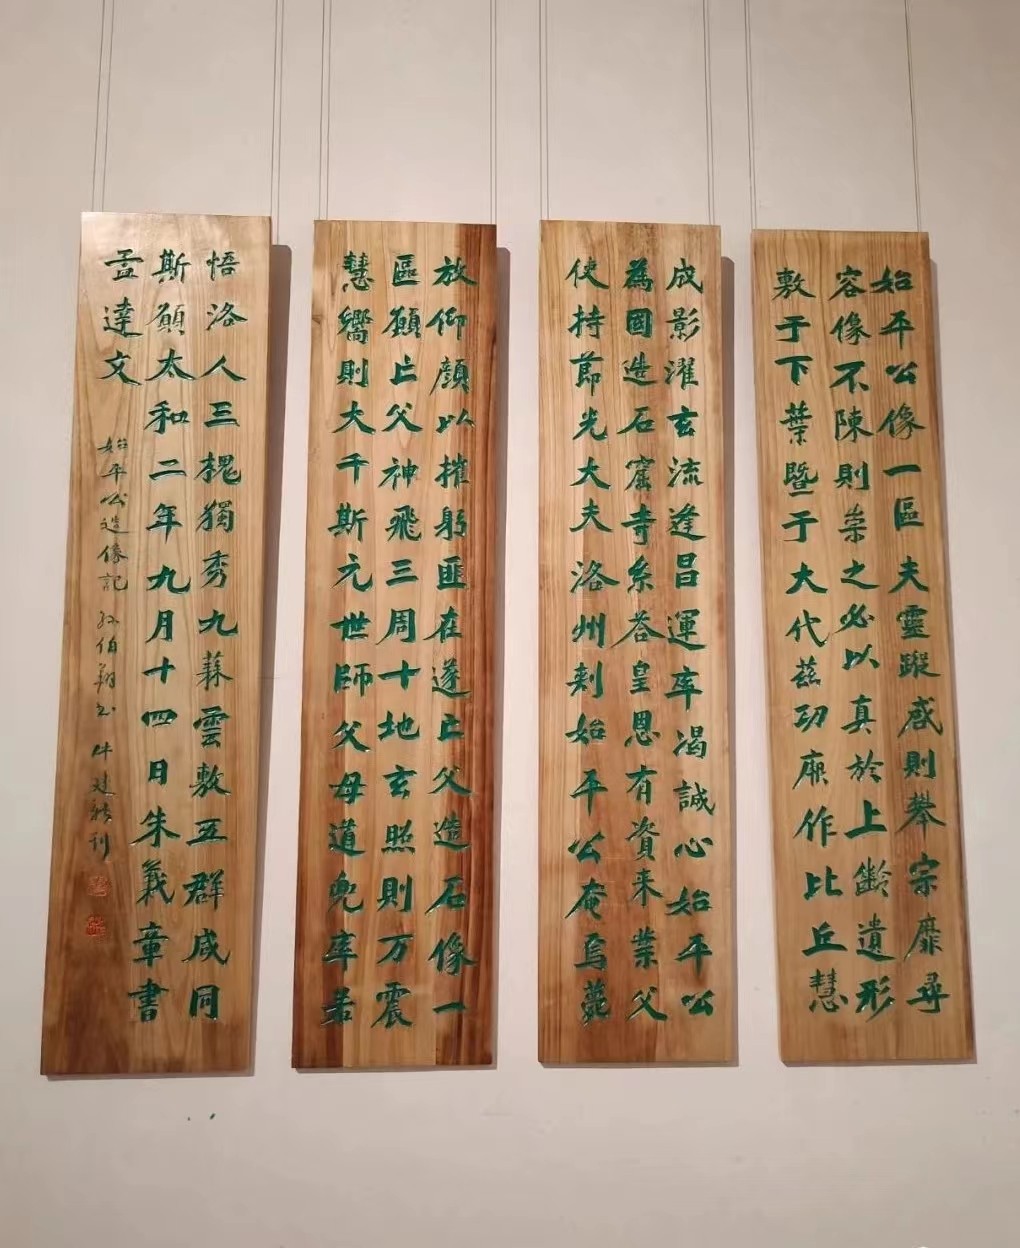 始平公像一區夫靈蹤感則攀宗靡尋
容像不陳則崇之必以真於上齡遺形
敷于下葉暨于大代茲功厥作比丘慧
成影濯玄流逢昌運率渴誠心始平公
為國造石窟寺系荅皇恩有資来業父
使持節光大夫洛州刺始平公奄焉薨
放仰顏以摧躬匪在遂亡父造石像一
區願亡父神飛三周十地玄照則万震
慧嚮則大千斯元世師父母道兜率若
悟洛人三槐獨秀九蕀雲敷五群咸同
斯願太和二年九月十四日朱義章書
孟達文
始平公造像記 孙伯翔书 建刊